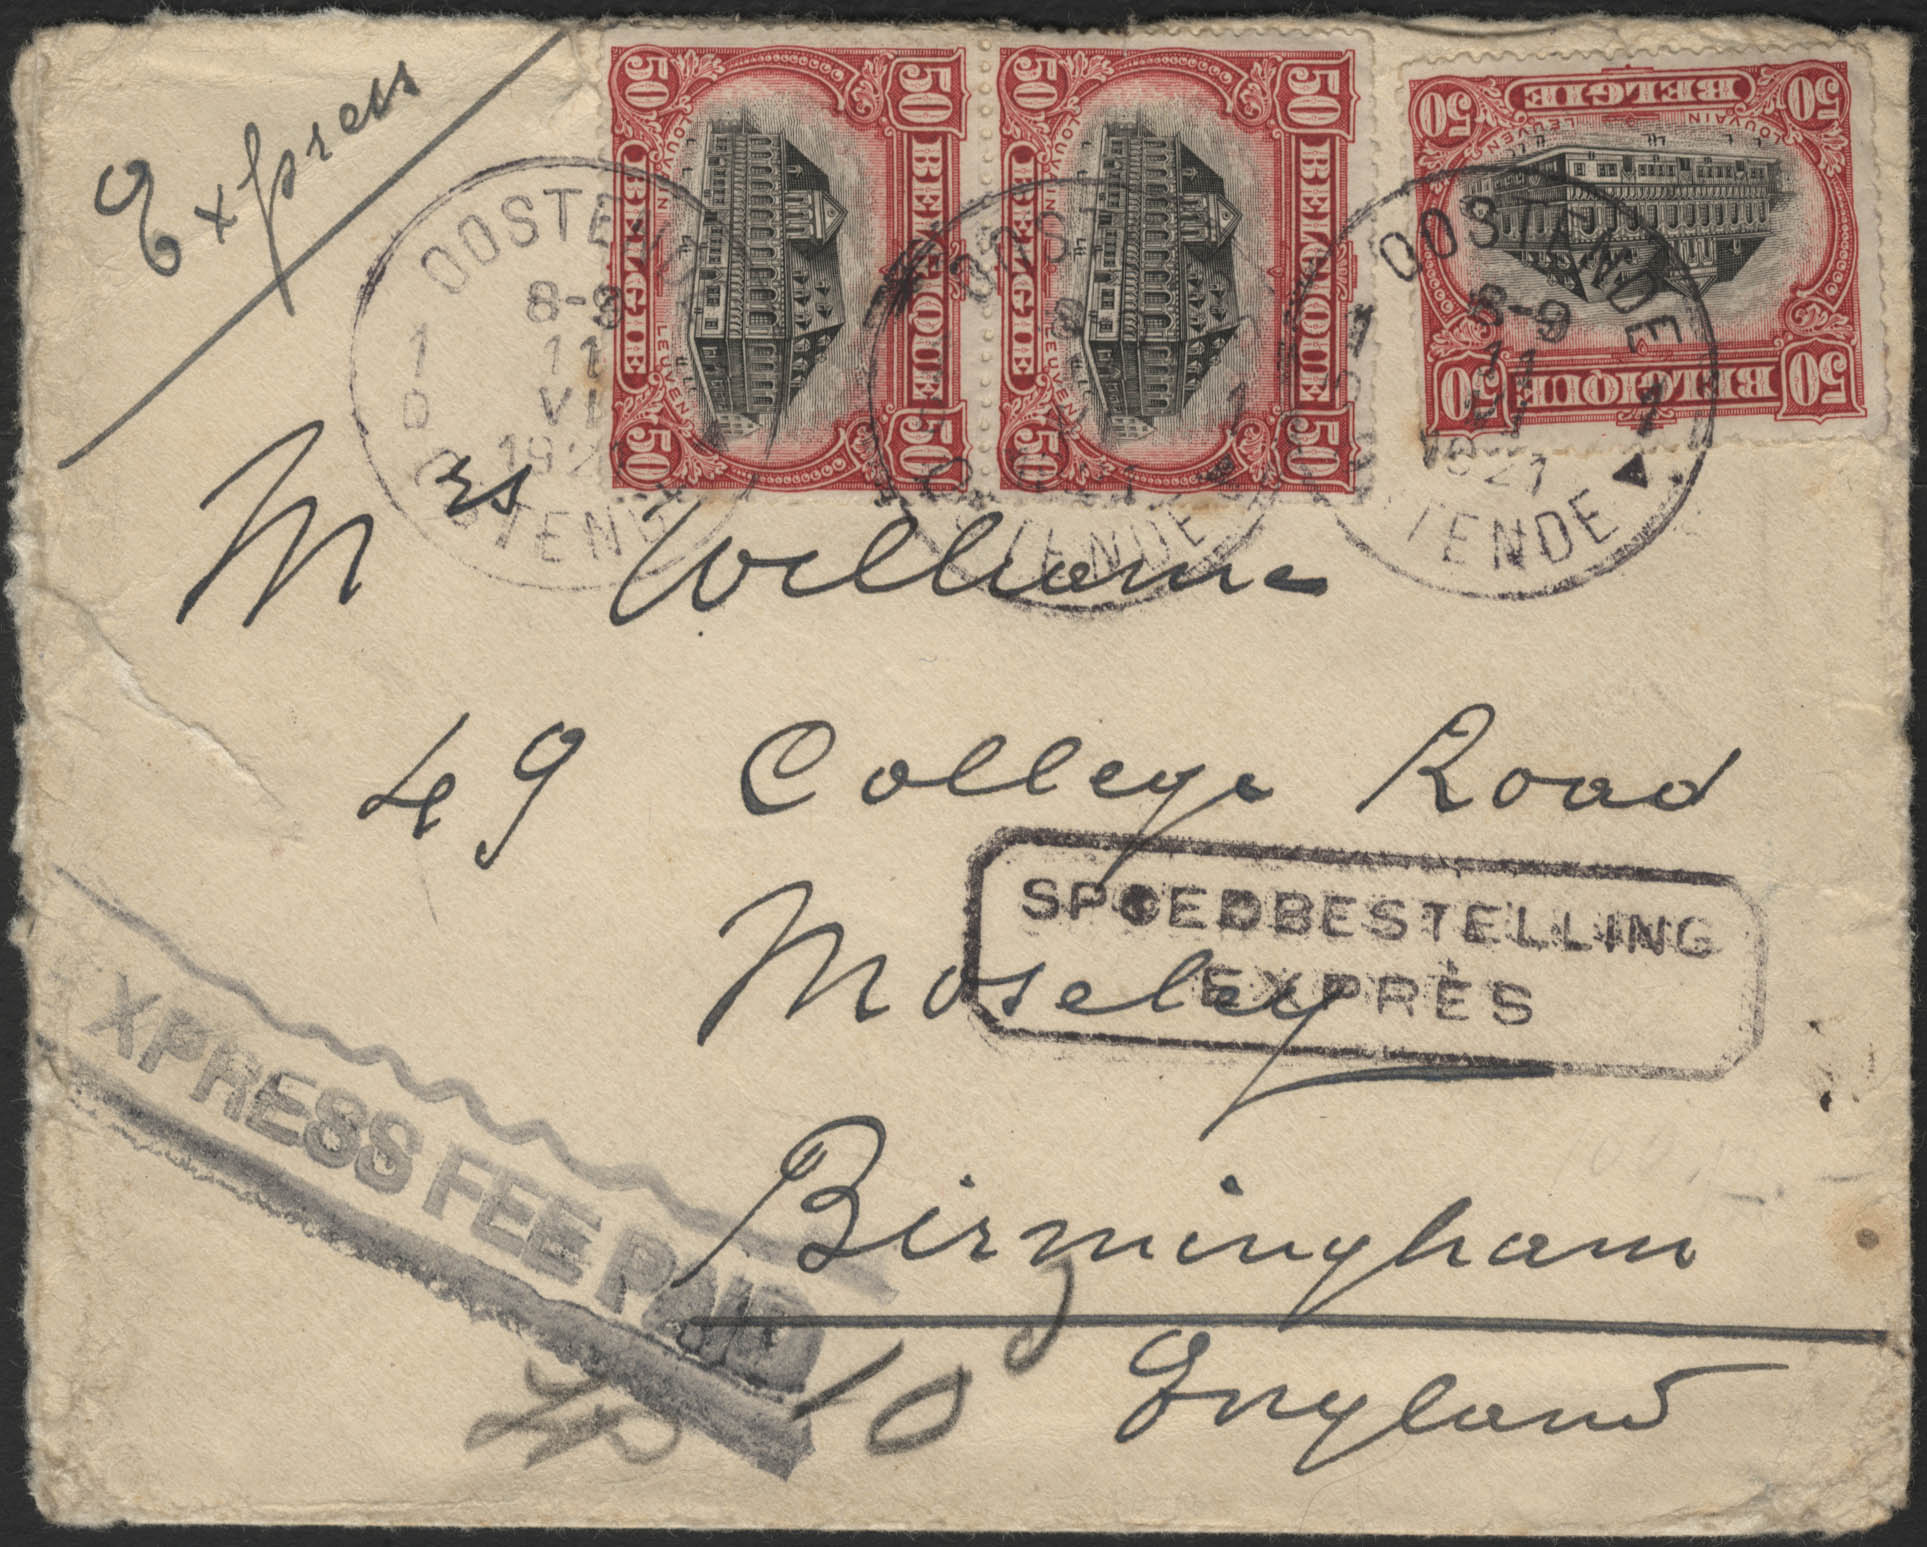 Express
50 50
BELGIQUE
BELGIË
LOUVAIN LEUVEN
50 50
50 50
BELGIQUE
BELGIË
LOUVAIN LEUVEN
50 50
50 50
BELGIQUE
BELGIË
LOUVAIN LEUVEN
50 50
OOSTENDE
8-9
1 11
D VI
1921
OSTENDE
OOSTENDE
OSTENDE
OOSTENDE
8-9
11 1
VI
1921
OSTENDE
Mrs Williams
49 College Road
SPOEDBESTELLING
EXPRÈS
Moseley
XPRESS FEE PAID
Birmingham
England